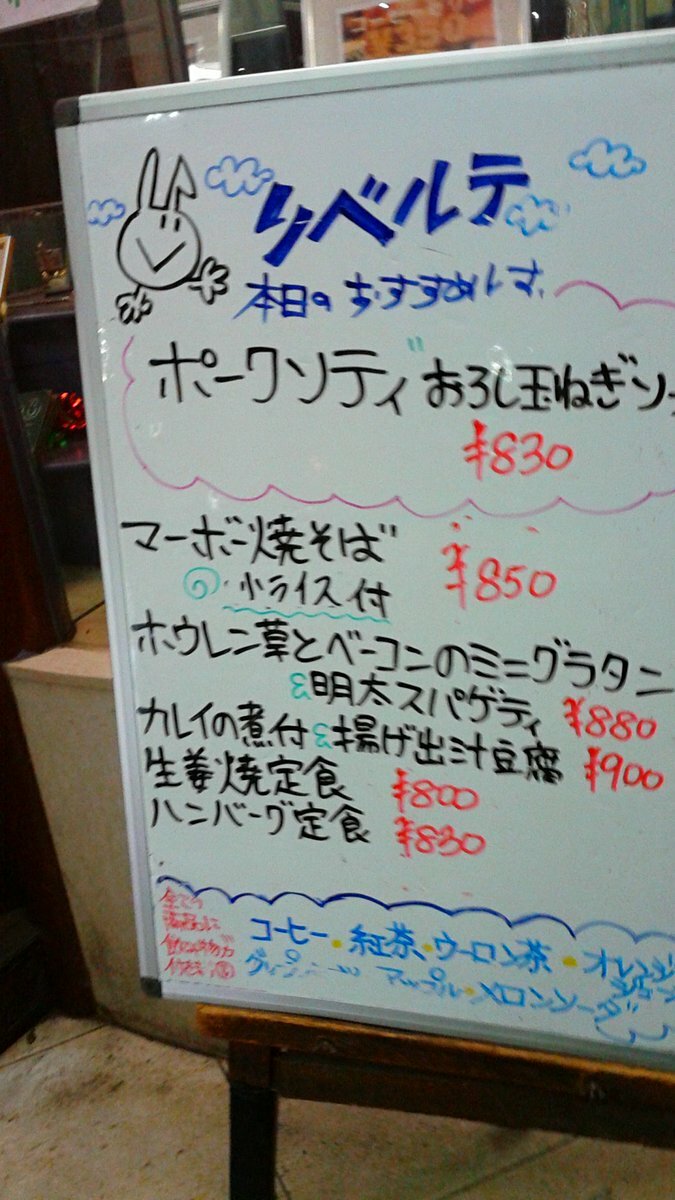 ¥350
リベルテ
本日のおすすめです。
ポークソティ おろし玉ねぎソー
¥830
マーボー焼そば ¥850
小ライス付
ホウレン草とベーコンのミニグラタン
&明太スパゲティ ¥880
カレイの煮付&揚げ出汁豆腐 ¥900
生姜焼定食 ¥800
ハンバーグ定食 ¥830
全ての
商品に
飲み物が
コーヒー・紅茶・ウーロン茶・オレンジ
アップル・メロンソーダ